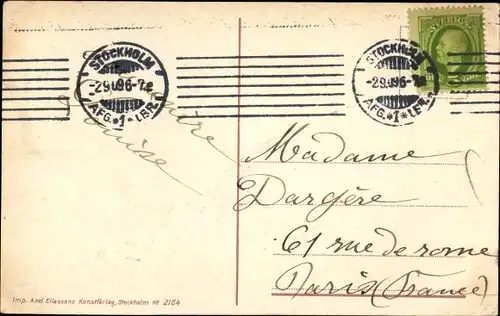 STOCKHOLM
-2.9.096-7 E
AFG.*1*1.BR.
STOCKHOLM
-2.9.096-7
AFG.*1*1.BR.
SVERIGE
Louise
Madame
Dargère
61 rue de rome
Paris (France)
Imp. Axel Eliassons Konstförlag, Stockholm Nº 2164